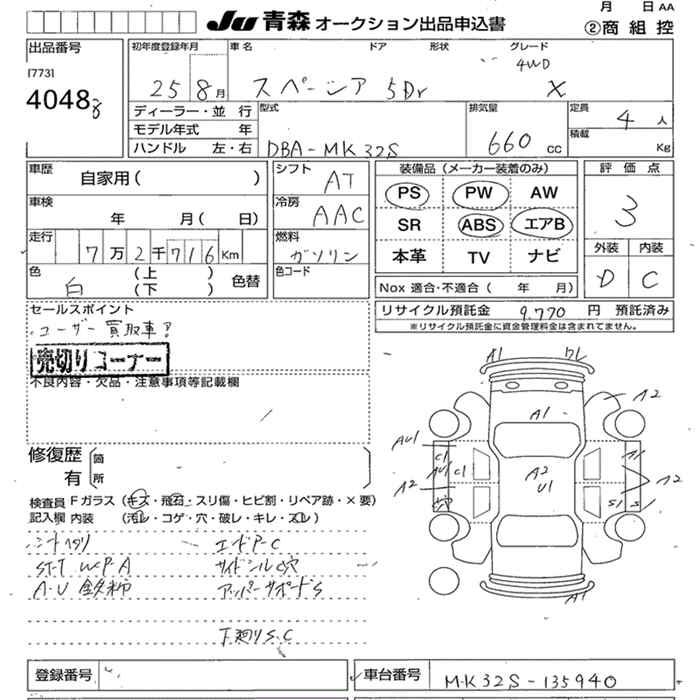 月 日 AA
JU 青森 オークション出品申込書
②商 組 控
出品番号
[773]
4048
初年度登録年月
25 8月
車名
スペーシア
ドア
5Dr
形状
グレード
4WD
X
ディーラー・並 行
モデル年式 年
ハンドル 左・右
型式
DBA-MK32S
排気量
660 cc
定員
4 人
積載
Kg
車歴
自家用( )
シフト
AT
車検
年 月( 日)
冷房
AAC
走行
7万2千716Km
燃料
ガソリン
色
白
(上)
(下)
色替
色コード
装備品(メーカー装着のみ)
PS PW AW
SR ABS エアB
本革 TV ナビ
Nox 適合・不適合( 年 月)
評価点
3
外装 内装
D C
リサイクル預託金 9,770 円 預託済み
※リサイクル預託金に資金管理料金は含まれてません。
セールスポイント
ユーザー買取車!
売切りコーナー
不良内容・欠品・注意事項等記載欄
修復歴
有
箇
所
検査員
記入欄
Fガラス(キズ・飛石・スリ傷・ヒビ割・リペア跡・×要)
内装(汚レ・コゲ・穴・破レ・キレ・スレ)
シートヘタリ
エンドP-C
ST-T W・P A
サイドシルC穴
A・U 鉄柿
アッパーサポートS
下廻りS.C
A1
A2
A1
AU1
C1
AU1
C1
A2
U1
A2
A1
A2
S1
A1
登録番号
車台番号
MK32S-135940